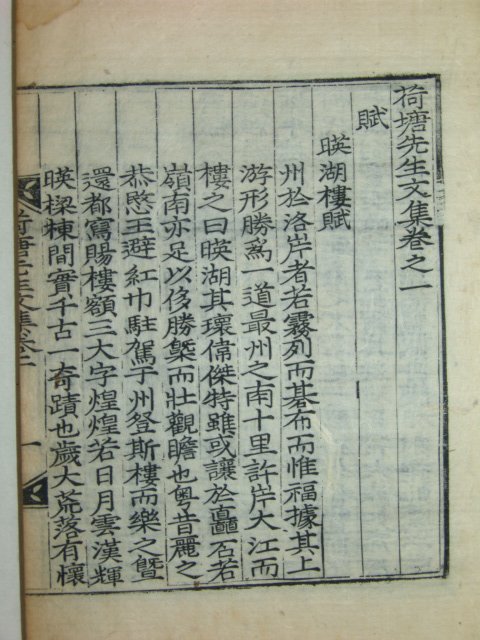 荷塘先生文集卷之一
賦
暎湖樓賦
州於洛岸者若霧列而碁布而惟福據其上
游形勝爲一道最州之南十里許岸大江而
樓之曰暎湖其瓌偉傑特雖或讓於矗石若
嶺南亦足以侈勝槩而壯觀瞻也粤昔麗之
恭愍王避紅巾駐駕于州登斯樓而樂之曁
還都寫賜樓額三大字煌煌若日月雲漢輝
暎樑棟間實千古一奇蹟也歲大荒落有懷
荷塘先生文集卷一 一